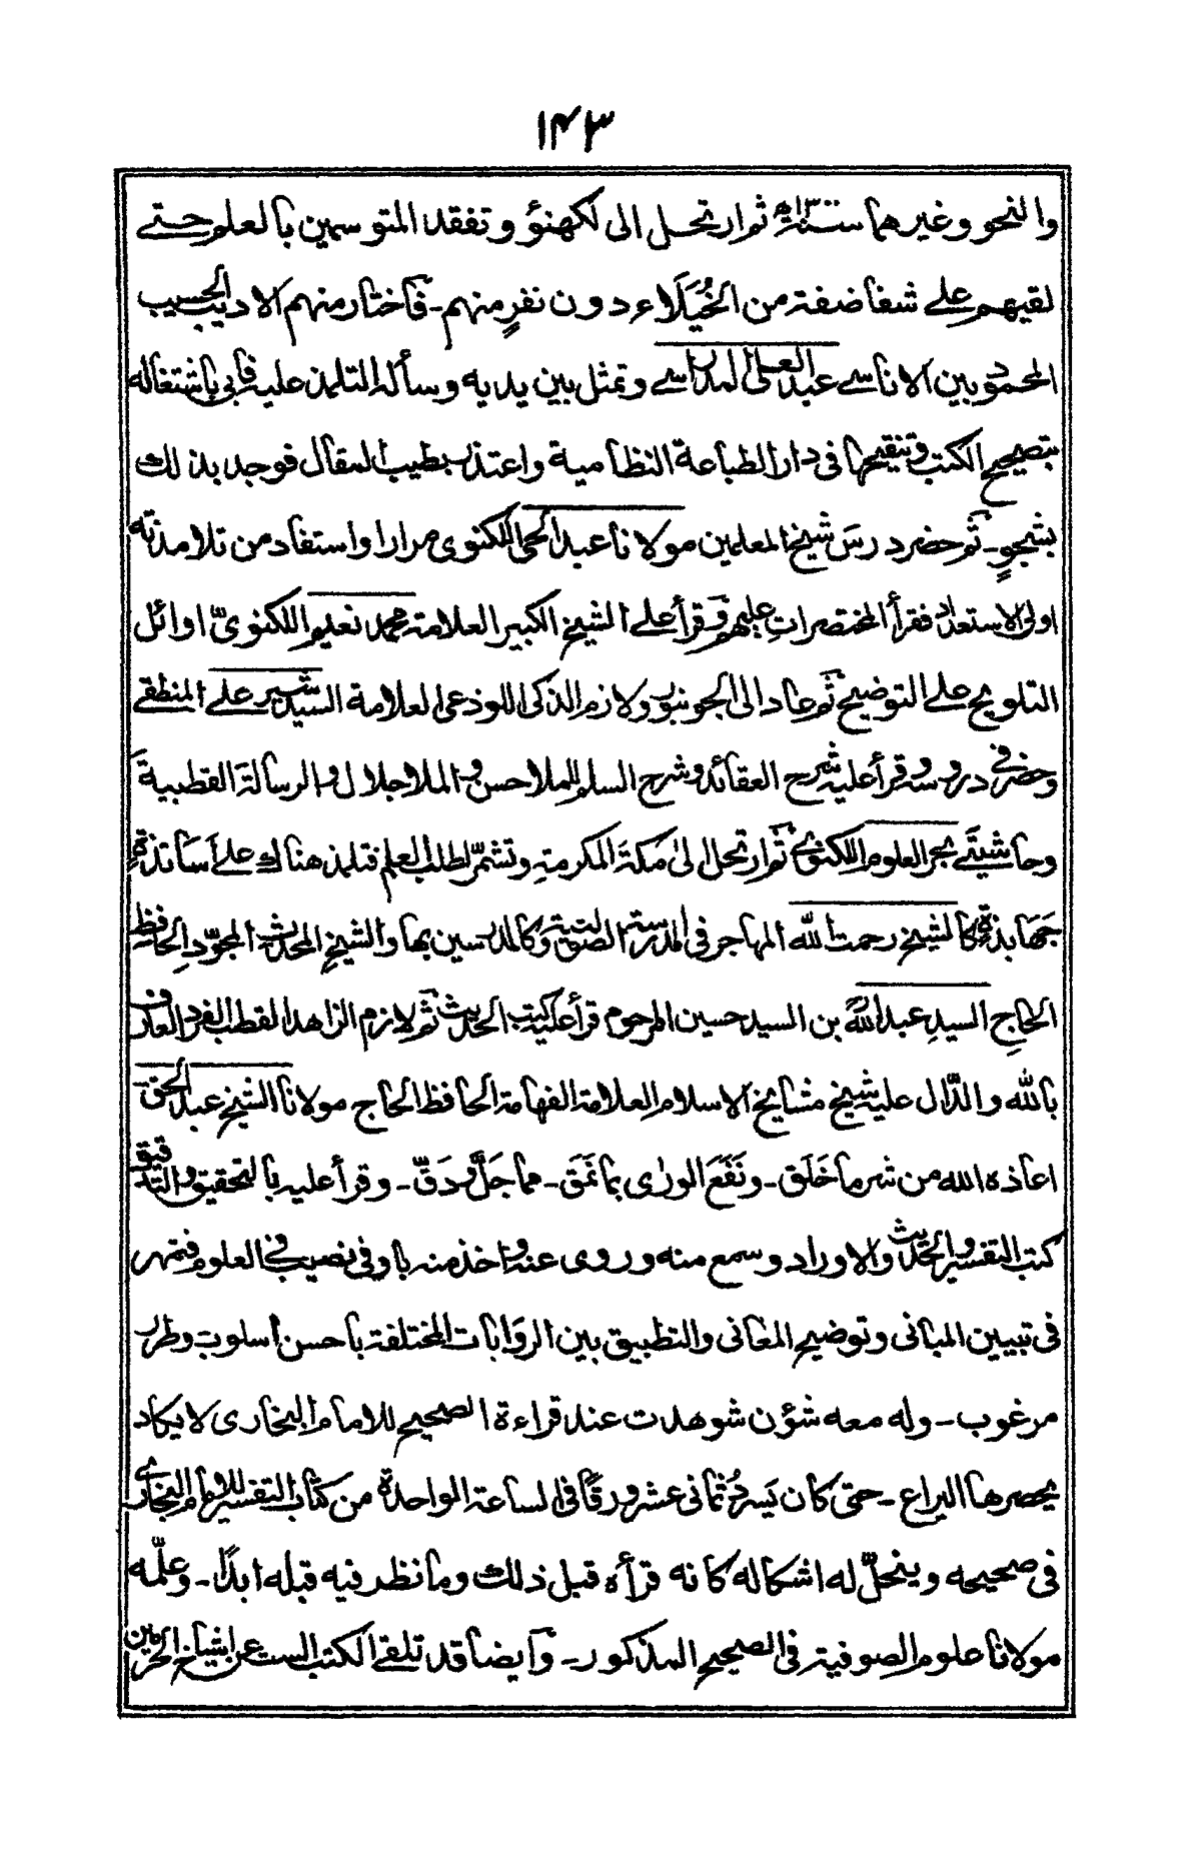 ۱۴۳
والنحو وغيرهما سنة ثم ارتحل الى لكهنؤ وتفقد المتوسمين بالعلم حتے
لقيهم علے شفا ضفة من الخُيَلَاء دون نفرٍ منهم۔ فاختار منهم الاديب الحسيب
المحمود بين الاناسے عبد العلی المدراسے وتمثل بين يديه وسأله التلمذ عليه فابى باشتغاله
بتصحيح الكتب وتنقيحها فى دار الطباعة النظامية واعتذر بطيب المقال فوجد بذلك
بشجوٍ۔ ثم حضر درسَ شيخ المعلمين مولانا عبد الحى اللكنوى مرارا واستفاد من تلامذته
اولى الاستعداد فقرأ المختصراتِ عليهم وقرأ علے الشيخ الكبير العلامة محمد نعيم اللكنوىّ اوائل
التلويح علے التوضيح ثم عاد الى الجونبور ولازم الذكى اللوذعى العلامة السيد شير علے المنطقے
وحضر فى دروسه وقرأ عليه شرح العقائد وشرح السلم للملا حسن والملا جلال والرسالة القطبية
وحاشيتَے بحر العلوم اللكنوى ثم ارتحل الىٰ مكةَ المكرمةِ وتشمّر لطلب العلم فتلمذ هناك علے اَساتذةٍ
جَهَابذةٍ كالشيخ رحمت الله المهاجر فى المدرسة الصولتية وكالمدرسين بها والشيخِ المحدث المجوّدِ الحافظِ
الحاجِ السيدِ عبد الله بن السيد حسين المرحوم قرأ عليه كتب الحديث ثم لازم الزاهد القطب الفرد العارف
بالله والدَّال عليه شيخ مشايخ الاسلام العلامة الفهامة الحافظ الحاج مولانا الشيخ عبد الحق
اعاذه الله من شر ما خَلَق۔ ونَفَعَ الورٰى بما نَمَق۔ مما جَلَّ ودَقّ۔ وقرأ عليه بالتحقيق والتدقيق
كتب التفسير والحديث والاوراد وسمع منه وروى عنه واخذ منه باوفى نصيب فى العلوم فتمهر
فى تبيين المبانى وتوضيح المعانى والتطبيق بين الروايات المختلفة باحسن اسلوب وطرز
مرغوب۔ وله معه شؤن شوهدت عند قراءة الصحيح للامام البخارى لا يكاد
يحصرها اليراع۔ حتى كان يَسرُدُ ثمانى عشر ورقًا فى الساعة الواحدة من كتاب التفسير للامام البخارى
فى صحيحه وينحلّ له اشكاله كانه قرأه قبل ذلك وما نظر فيه قبله ابدًا۔ وعلّمه
مولانا علوم الصوفية فى الصحيح المذكور۔ وايضا قد تلقے الكتب الست عن اشياخ الحرمين